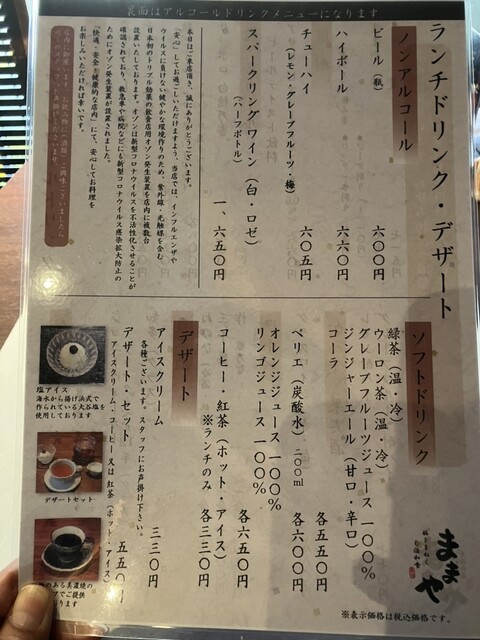 裏面はアルコールドリンクメニューになります
ランチドリンク・デザート
ノンアルコール
ビール（瓶）
六〇〇円
ハイボール
六六〇円
チューハイ
（レモン・グレープフルーツ・梅）
六〇五円
スパークリング・ワイン（白・ロゼ）
（ハーフボトル）
一、六五〇円
本日はご来店頂き、誠にありがとうございます。
「安心」してお過ごしいただけますよう、当店では、インフルエンザや
ウイルスに負けない健やかな環境作りのため、紫外線・光触媒を含む、
日本初のトリプル効果の飲食店用オゾン発生装置を店内に複数台
設置いたしております。オゾンは新型コロナウイルスを不活性化させることが
確認されており、救急車や病院などにも新型コロナウイルス感染拡大防止の
ためにオゾン発生装置が設置されました。
「快適・安全・健康的な店内」にて、安心してお料理を
お楽しみいただければ幸いです。
ソフトドリンク
緑茶（温・冷）
ウーロン茶（温・冷）
グレープフルーツジュース 一〇〇％
ジンジャーエール（甘口・辛口）
コーラ
各五五〇円
ペリエ（炭酸水）二〇〇ml
各六〇〇円
オレンジジュース 一〇〇％
リンゴジュース 一〇〇％
各六五〇円
コーヒー・紅茶（ホット・アイス）
※ランチのみ 各三三〇円
デザート
アイスクリーム
各種ございます。スタッフにお声掛け下さい。
三三〇円
デザート・セット
アイスクリーム・コーヒー又は紅茶（ホット・アイス）
五五〇円
塩アイス
海水から揚げ浜式で
作られている大谷塩を
使用しております
デザートセット
のある美濃焼の
プでご提供
おります
ままや
※表示価格は税込価格です。